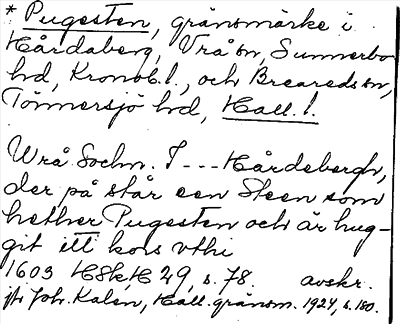 * Pugesten, gränsmärke i
Hårdaberg, Vrå sn, Sunnerbo
hd, Kronob. l., och Breareds sn,
Tönnersjö hd, Hall. l.
Wrå Sochn. I --- Hårdebergh,
der på står een Steen som
hether Pugesten och är hug-
git itt kors vthi
1603 HSk, H 29, s. 78. avskr.
jfr Joh. Kalén, Hall. gränsm. 1924, s. 180.